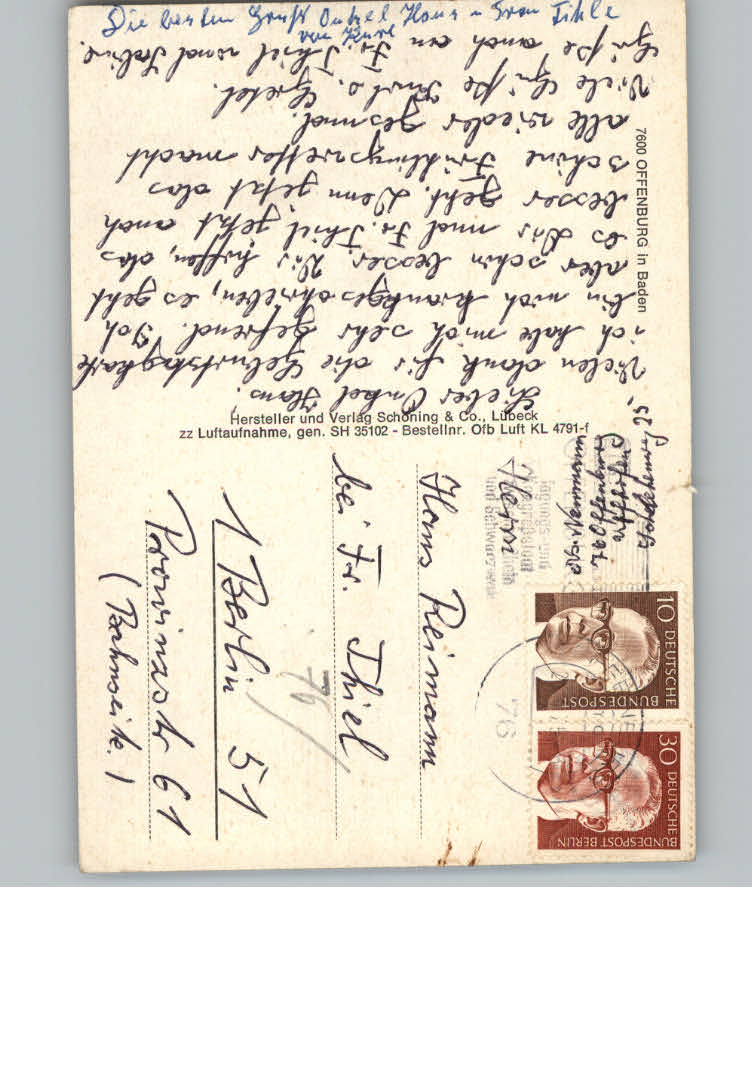 Lieber Onkel Hans.
Vielen dank für die Geburtstagskarte
ich habe mich sehr gefreud. Ich
bin noch krankgeschrieben, es geht
aber schon besser. Wir hoffen, das
es Dir und Fr. Thiel, jetzt auch
besser geht. Denn jetzt das
schöne Frühlingswetter macht
alle wieder gesund.
Viele Grüße Kurt u. Gretel.
Grüße auch an Fr. Thiel und
Die besten Grüße Onkel Hans u Frau Tihle
von Kurt
7600 OFFENBURG in Baden
Hersteller und Verlag Schöning & Co., Lübeck
zz Luftaufnahme, gen. SH 35102 - Bestellnr. Ofb Luft KL 4791-f
Herrn
Hans Reimann
bei Fr. Thiel
1 Berlin 51
Provinzstr 61
(Bahnseite.)
76
76
10 DEUTSCHE BUNDESPOST
30 DEUTSCHE BUNDESPOST BERLIN